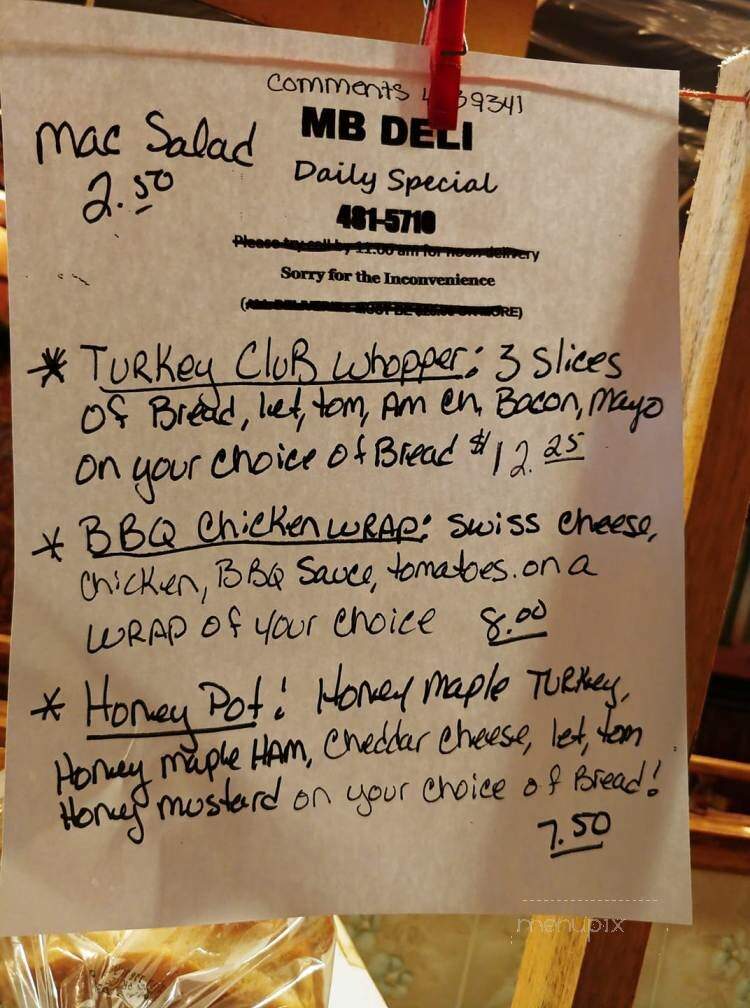 Comments 39341
Mac Salad
2.50
MB DELI
Daily Special
481-5710
Please try call by 11:00 am for noon delivery
Sorry for the Inconvenience
* Turkey Club Whopper: 3 Slices
of Bread, let, tom, Am Ch, Bacon, Mayo
on your choice of Bread $12.25
* BBQ Chicken WRAP: Swiss cheese,
chicken, BBQ Sauce, tomatoes. on a
WRAP of your choice 8.00
* Honey Pot! Honey maple Turkey,
Honey maple HAM, Cheddar Cheese, let, tom
Honey mustard on your choice of Bread!
7.50
menupix